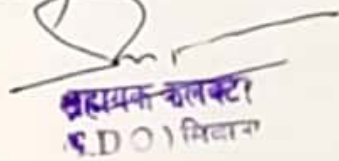 सहायक कलक्टर
(S.D.O) सिवाना